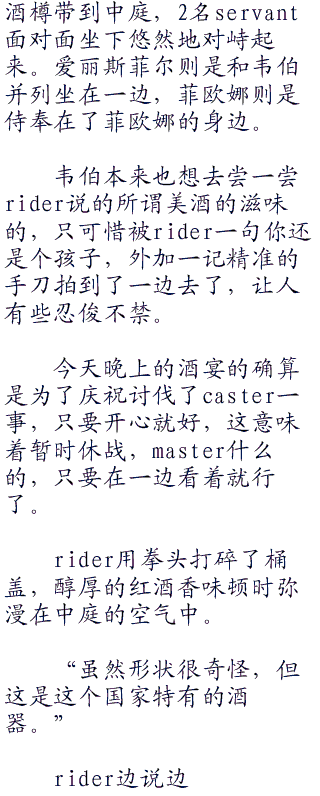 酒樽带到中庭，2名servant
面对面坐下悠然地对峙起
来。爱丽斯菲尔则是和韦伯
并列坐在一边，菲欧娜则是
侍奉在了菲欧娜的身边。
韦伯本来也想去尝一尝
rider说的所谓美酒的滋味
的，只可惜被rider一句你还
是个孩子，外加一记精准的
手刀拍到了一边去了，让人
有些忍俊不禁。
今天晚上的酒宴的确算
是为了庆祝讨伐了caster一
事，只要开心就好，这意味
着暂时休战，master什么
的，只要在一边看着就行
了。
rider用拳头打碎了桶
盖，醇厚的红酒香味顿时弥
漫在中庭的空气中。
“虽然形状很奇怪，但
这是这个国家特有的酒
器。”
rider边说边